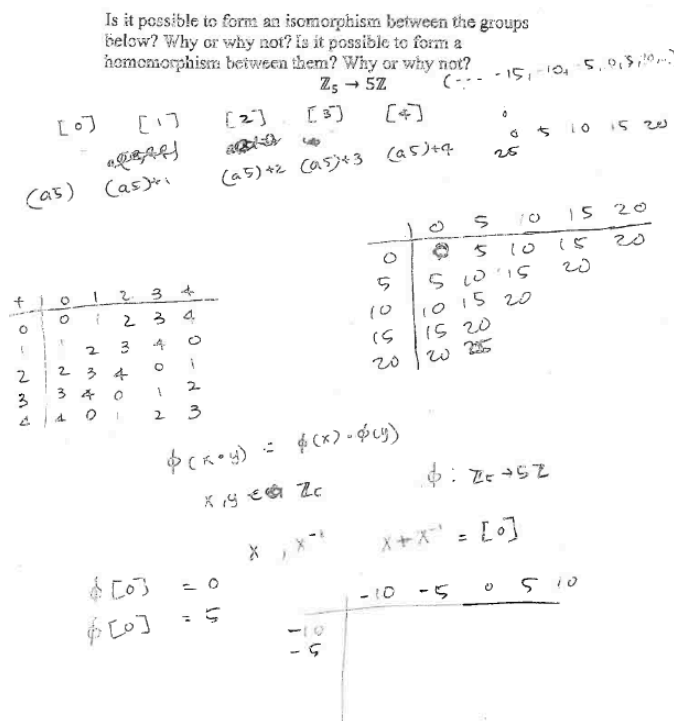 Is it possible to form an isomorphism between the groups
below? Why or why not? Is it possible to form a
homomorphism between them? Why or why not?
ℤ₅ → 5ℤ
(---- -15, -10, -5, 0, 5, 10, ...
[0] [1] [2] [3] [4]
0 5 10 15 20
25
(a5) (a5)+1 (a5)+2 (a5)+3 (a5)+4
0 5 10 15 20
0 0 5 10 15 20
5 5 10 15 20
10 10 15 20
15 15 20
20 20 25
+ 0 1 2 3 4
0 0 1 2 3 4
1 1 2 3 4 0
2 2 3 4 0 1
3 3 4 0 1 2
4 4 0 1 2 3
ϕ(x∘y) = ϕ(x)∘ϕ(y)
x, y ∈ ℤ₅
ϕ: ℤ₅ → 5ℤ
x, x⁻¹ x + x⁻¹ = [0]
ϕ[0] = 0
ϕ[0] = 5
-10 -5 0 5 10
-10
-5